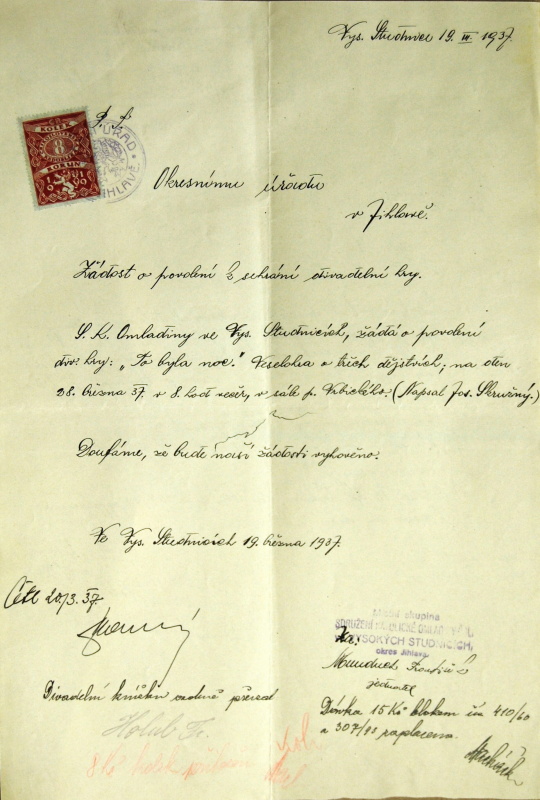 Vys. Studnice 19. III. 1937.
KOLEK
8
KORUN
P. T.
Okresnímu úřadu
v Jihlavě.
Žádost o povolení k sehrání divadelní hry.
S. K. Omladiny ve Vys. Studnicích, žádá o povolení
div. hry: „To byla noc." Veselohra o třech dějstvích, na den
28. března 37. v 8. hod večer, v sále p. (Napsal Jos. Skružný.)
Doufáme, že bude naší žádosti vyhověno.
Ve Vys. Studnicích 19. března 1937.
Četl 20/3. 37.
Místní skupina
SDRUŽENÍ KATOLICKÉ OMLADINY
VYSOKÝCH STUDNICÍCH,
okres Jihlava
Za:
František
jednatel
Divadelní knížku osobně převzal
Holub Fr.
8 Kč kolek
Dávka 15 Kč blokem čís 410/60
a 307/93 zaplacena.